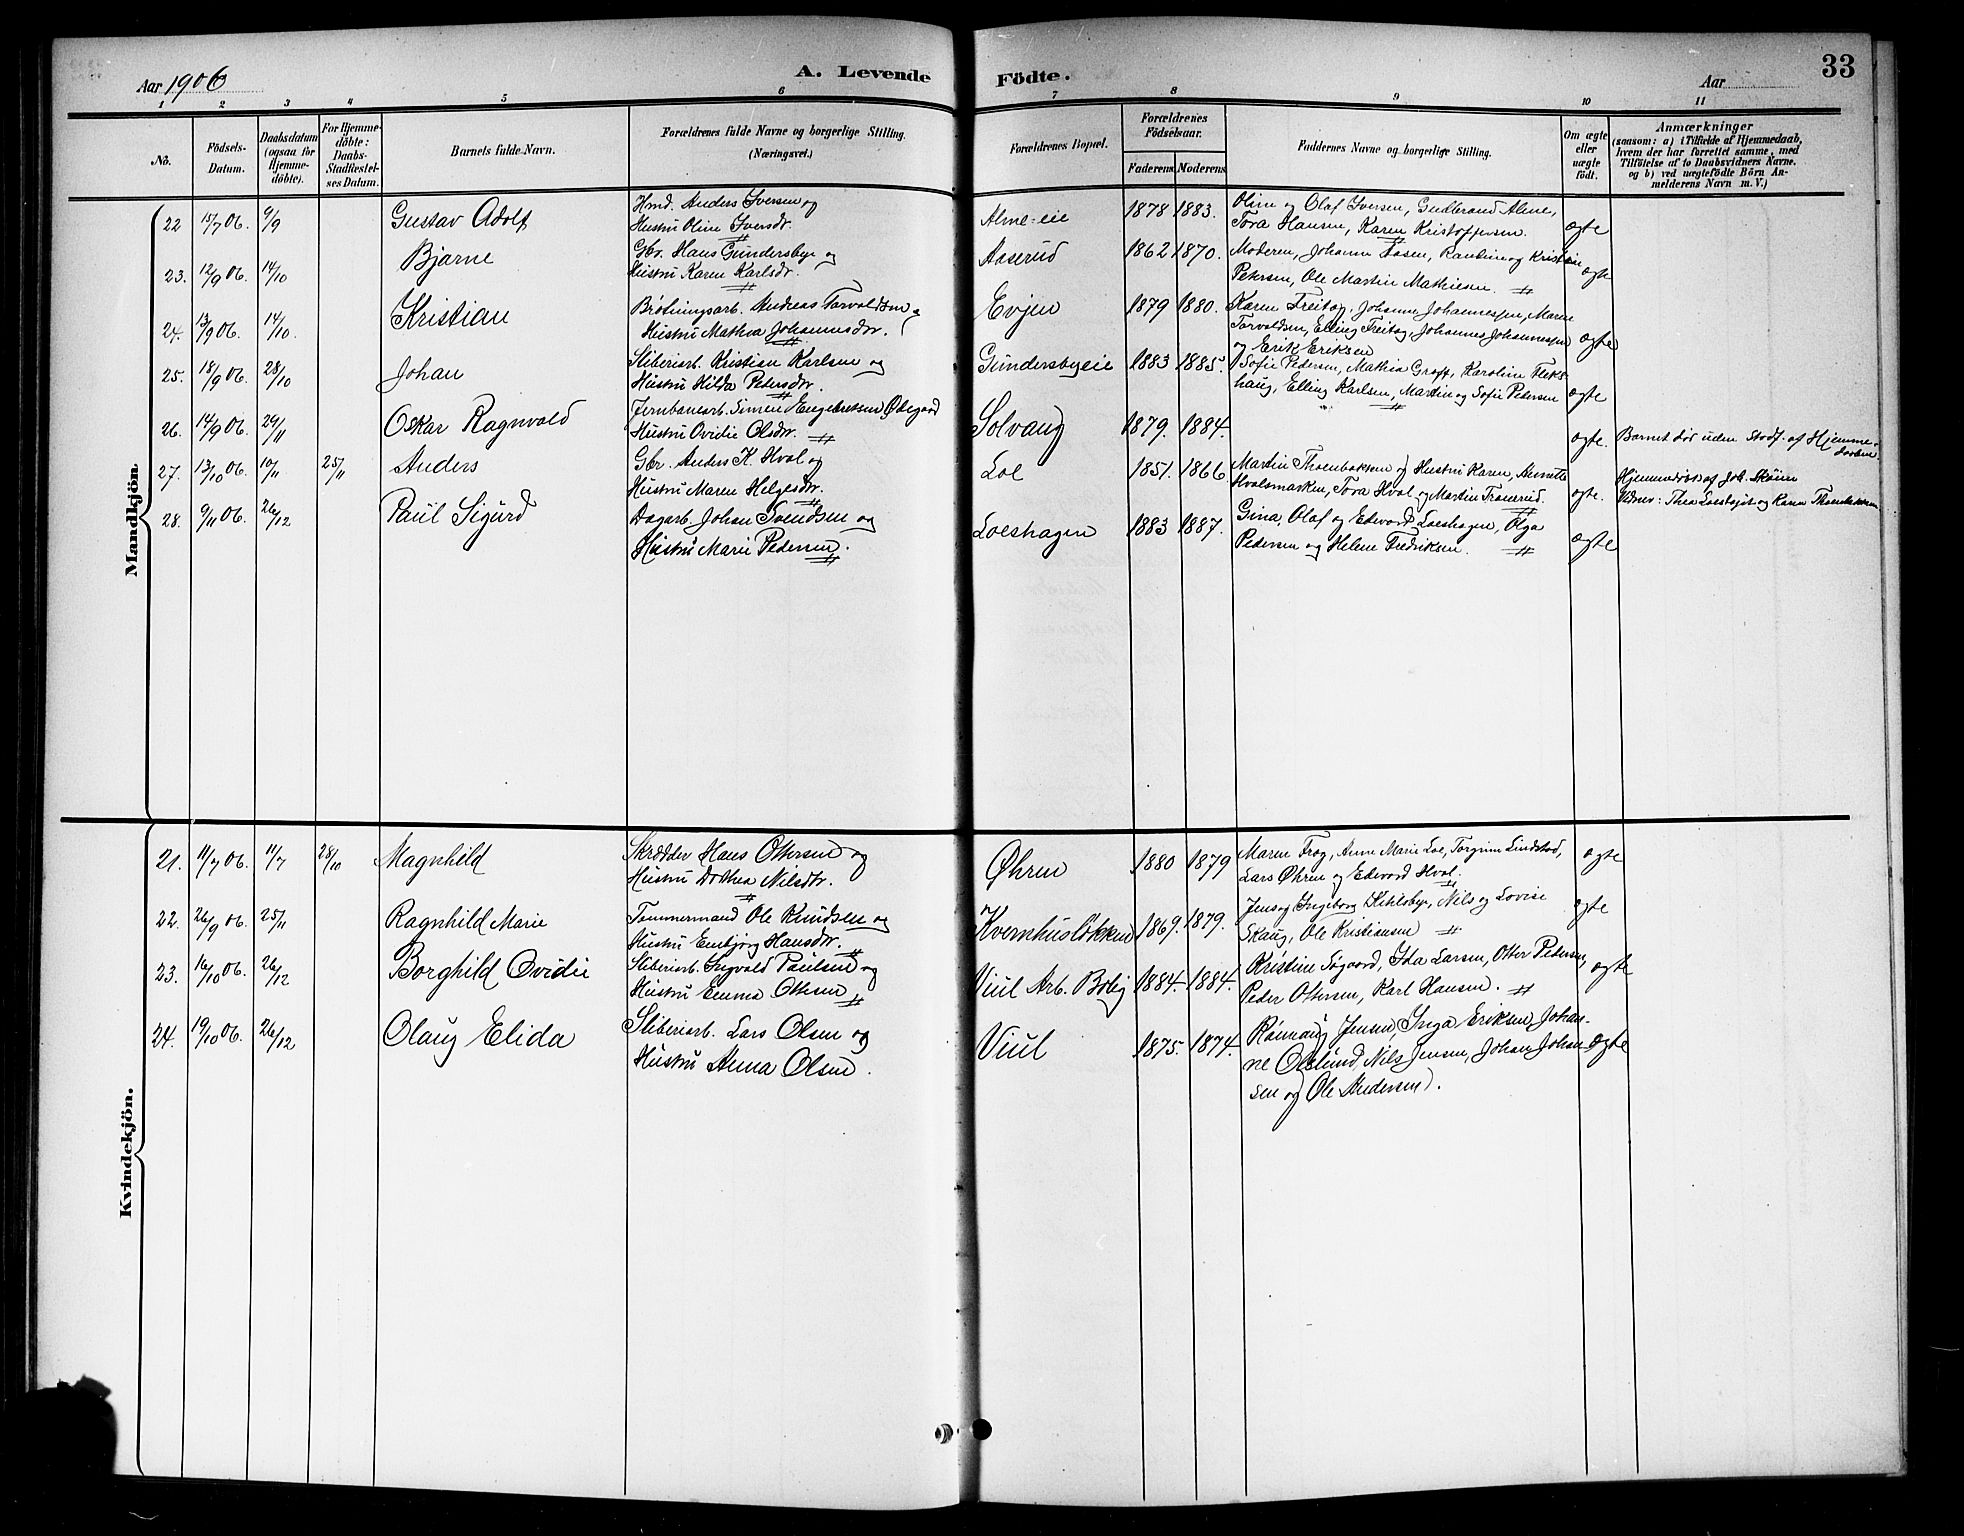 Aar 1906
A. Levende
Födte.
Aar
33
1 2 3 4 5 6 7 8 9 10 11
No.
Födsels-
Datum.
Daabsdatum
(ogsaa for
Hjemme-
döbte).
For Hjemme-
döbte:
Daabs-
Stadfæstel-
ses Datum.
Barnets fulde Navn.
Forældrenes fulde Navne og borgerlige Stilling.
(Næringsvei.)
Forældrenes Bopæl.
Forældrenes
Födselsaar.
Faderens Moderens
Faddernes Navne og borgerlige Stilling.
Om ægte
eller
uægte
födt.
Anmærkninger
(saasom: a) i Tilfælde af Hjemmedaab,
hvem der har forrettet samme, med
Tilföielse af to Daabsvidners Navne,
og b) ved uægtefödte Börn An-
melderens Navn m. V.)
Mandkjön.
22 15/7 06. 9/9 Gustav Adolf
Hmd. Anders Iversen og
Hustru Oline Iversdr.
Alme-eie 1878 1883.
Oline og Olaf Iversen, Gudbrand Alme,
Tora Hansen, Karen Kristoffersen.
ægte
23. 12/9 06. 14/10 Bjarne
Gbr. Hans Gundersbye og
Hustru Karen Karlsdr.
Aaserud 1862 1870.
Moderen, Johanne Fosen, Randine og Kristian
Petersen, Ole Martin Mathiesen. —〃—
ægte
24. 13/9 06. 14/10. Kristian
Brötningsarb. Andreas Torvaldsen og
Hustru Mathea Johannesdr.
Evjen 1879 1880.
Karen Freitag, Johanne Johannessen, Maren
Torvaldsen, Elling Freitag, Johannes Johannessen
og Erik Eriksen
ægte
25. 18/9 06. 28/10 Johan
Sliberiarb. Kristian Karlsen og
Hustru Hilda Petersdr.
Gundersbyeie 1883 1885.
Sofie Pedersen, Mathea Graff, Karoline Fleks-
haug, Elling Karlsen, Martin og Sofie Pedersen
ægte
26. 14/9 06. 29/11 Oskar Ragnvald
Jernbanearb. Simen Engebretsen Ødegaard
Hustru Ovidie Olsdr. —〃—
Solvang 1879. 1884.
ægte.
Barnet dör uden Stadf. af Hjemme-
daaben
27. 13/10 06. 10/11 25/11 Anders
Gbr. Anders K. Hval og
Hustru Maren Helgesdr.
Loe 1851. 1866.
Martin Thoenbakken og Hustru Karen, Annette
Hvalsmarken, Tora Hval og Martin Tranerud.
ægte.
Hjemmedöbt af Joh. Sköien
Vidner: Thea Loesbyit og Karen Thoenbakken
28. 9/11 06. 26/12 Paul Sigurd
Dagarb. Johan Svendsen og
Hustru Marie Pedersen.
Loeshagen 1883 1887.
Gina, Olaf og Edvard Loeshagen, Olga
Pedersen og Helene Fredriksen. —〃—
ægte
Kvindekjön.
21. 11/7 06. 11/7 28/10 Magnhild
Skrædder Hans Ottersen og
Hustru Dorthea Nilsdtr.
Øhren 1880 1879
Maren Frog, Anne Marie Loe, Torgrim Lindstad,
Lars Øhren og Edvard Hval.
ægte
22. 26/9 06. 25/11 Ragnhild Marie
Tømmermand Ole Knudsen og
Hustru Embjörg Hansdtr.
Kvernhusløkken 1869. 1879.
Jens og Ingeborg Kihlsbye, Nils og Lovise
Skaug, Ole Kristiansen —〃—
ægte
23. 16/10 06. 26/12 Borghild Ovidie
Sliberiarb. Sigvald Paulsen og
Hustru Emma Ottesen
Viul Arb. Bolig 1884. 1884.
Kristine Søgaard, Ida Larsen, Otter Pedersen,
Peder Ottersen, Karl Hansen. —〃—
ægte
24. 19/10 06. 26/12 Olaug Elida
Sliberiarb. Lars Olsen og
Hustru Anna Olsen.
Viul 1875. 1874.
Rønnaug Jensen, Inga Eriksen, Johan-
ne Oslund, Nils Jensen, Johan Johan-
sen og Ole Andersen.
ægte